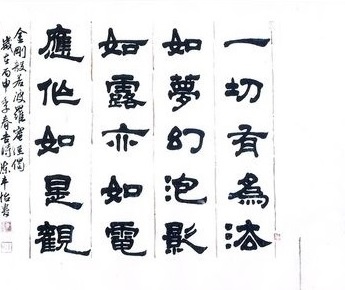 一切有為法
如夢幻泡影
如露亦如電
應作如是觀
金剛般若波羅密經偈
歲在丙申季春